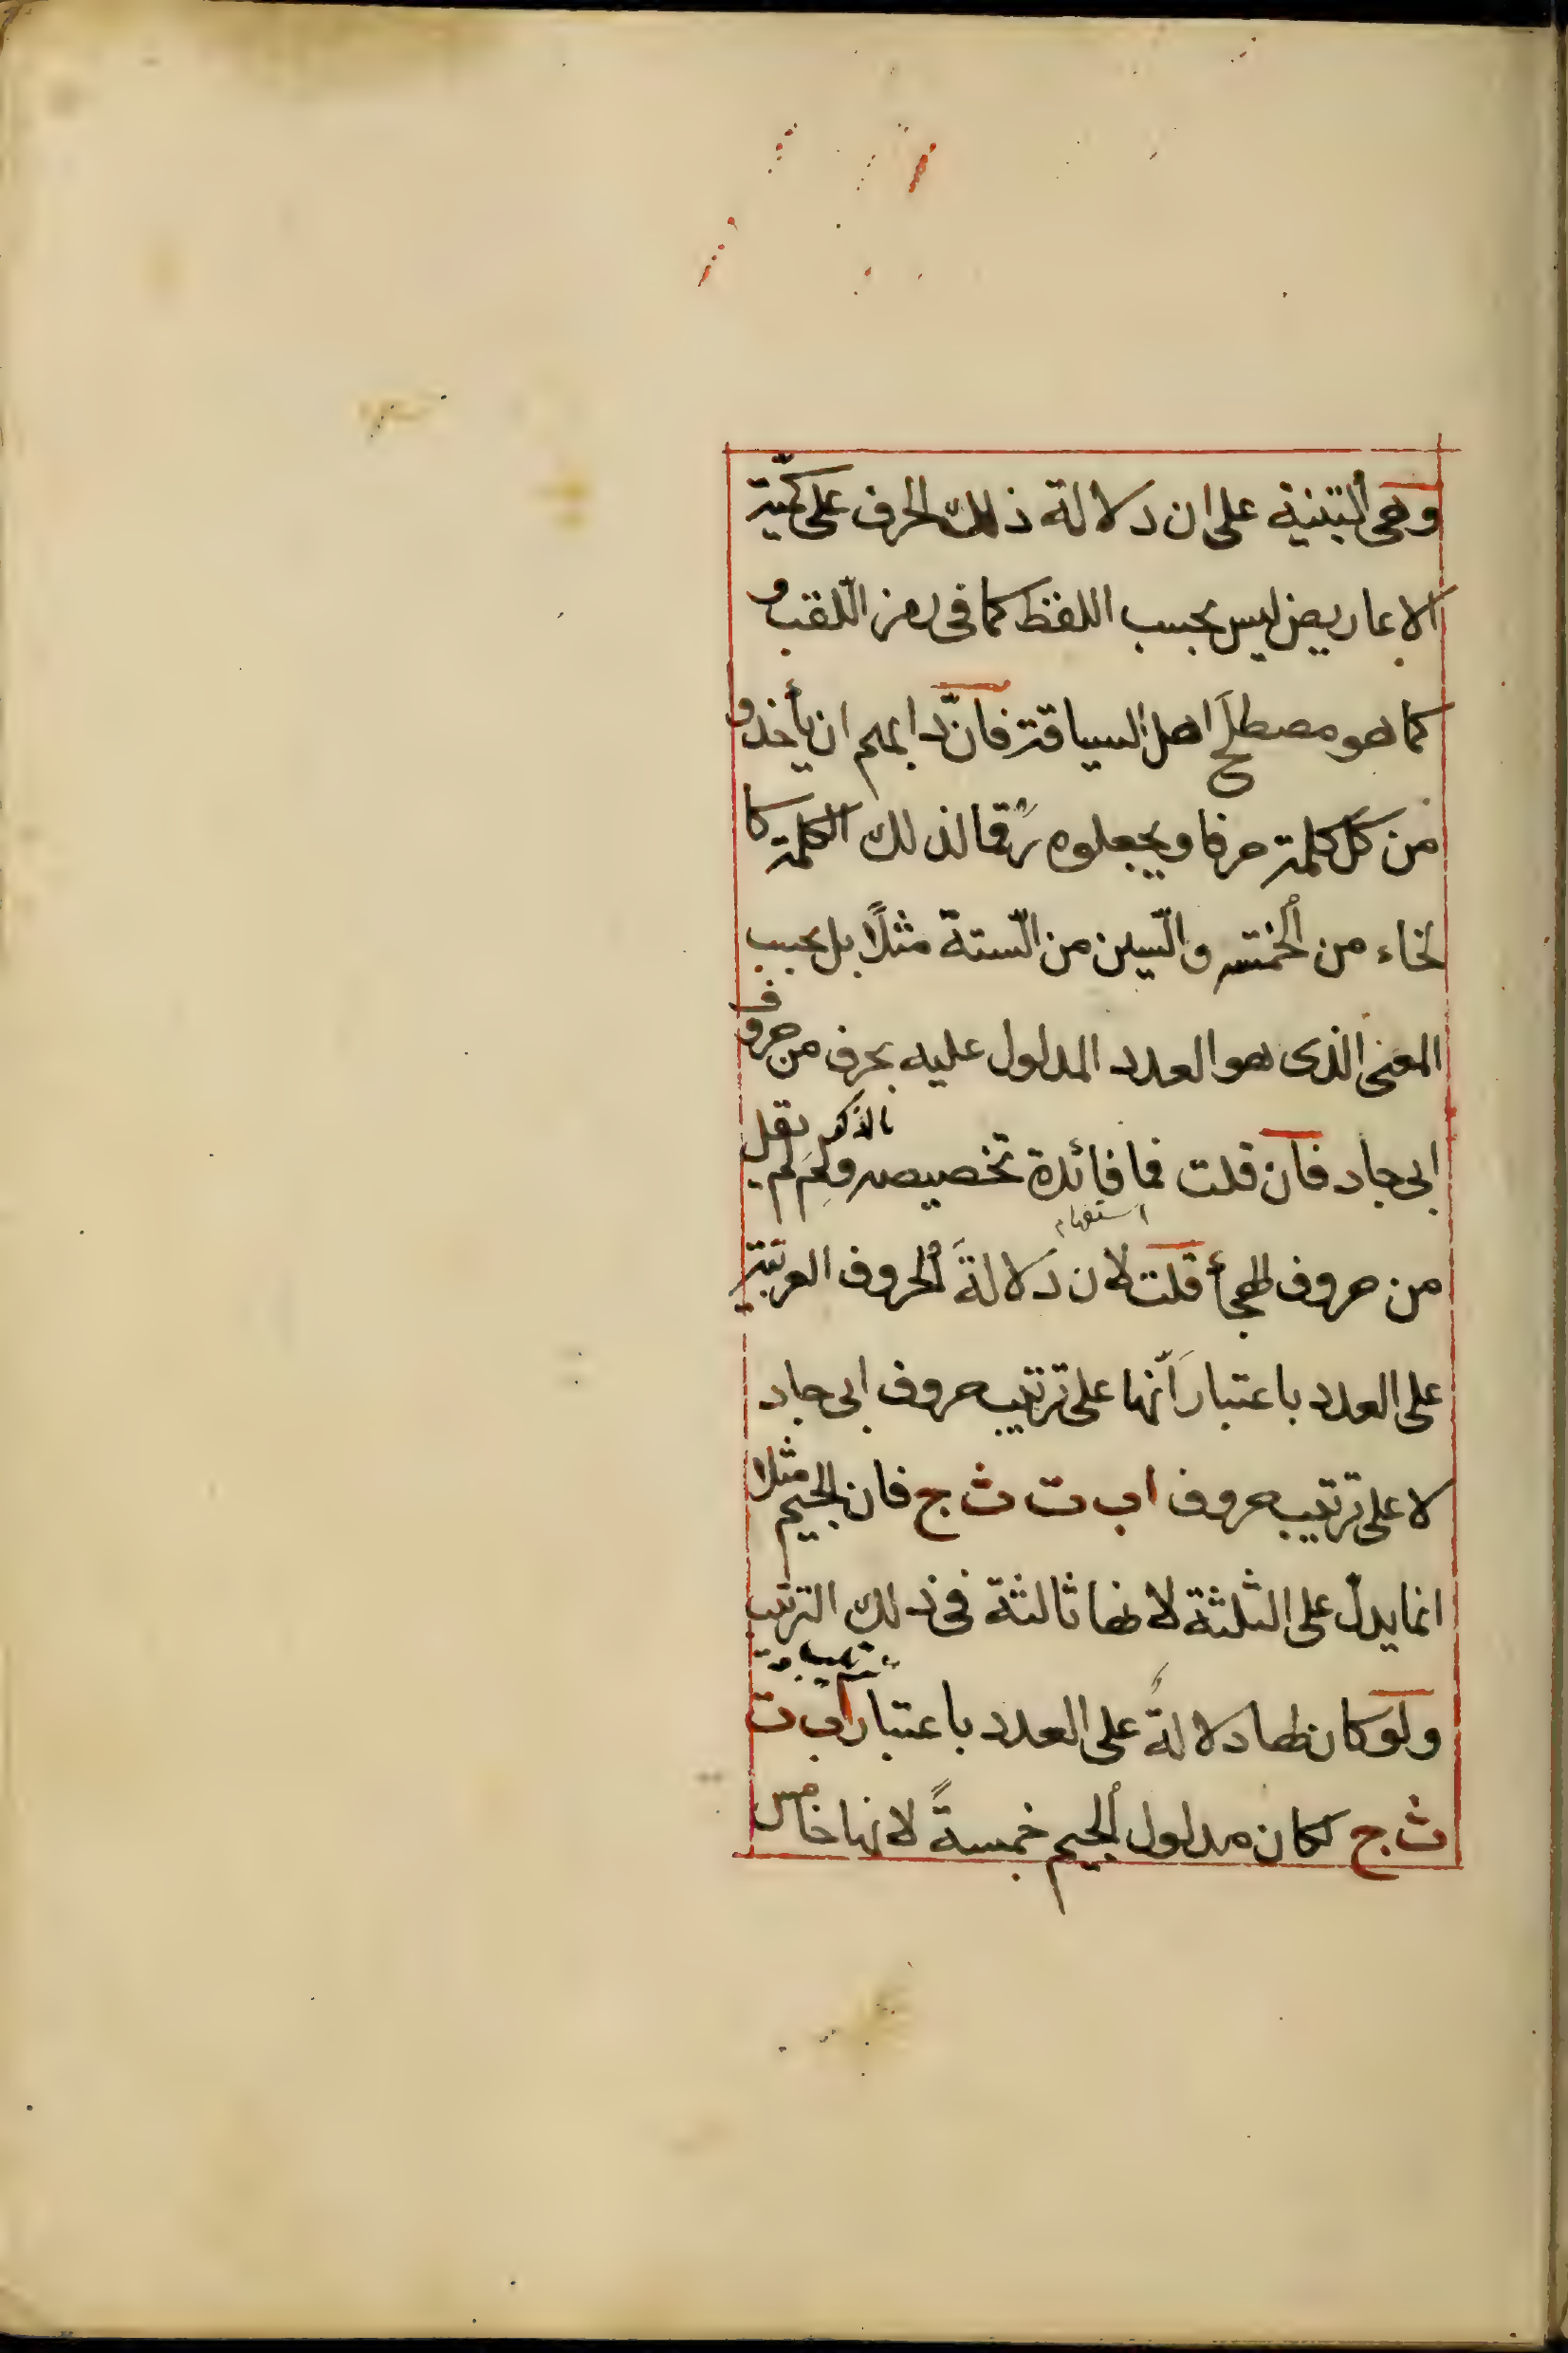 وهى التنبيه على ان دلالة ذلك الحرف على كميّة
الاعاريض ليس بحسب اللفظ كما فى رمز اللّقب و
كما هو مصطلح اهل السياقة فانّ دابهم ان يأخذو
من كل كلمة حرفا ويجعلوه رقما لذلك الكلمة كا
لخاء من الخمسة والسّين من السّتة مثلًا بل بحسب
المعنى الذى هو العدد المدلول عليه بحرف من حروف
ابى جاد فان قلت فما فائدة تخصيصه بالذكر ولِمَ لم يقل
استفهام
من حروف الهجأ قلت لان دَلالةَ الحروف العربيّة
على العدد باعتبار اَنّها على ترتيب حروف ابى جاد
لا على ترتيب حروف ا ب ت ث ج فان الجيم مثلا
انما يدلّ على الثلثة لانها ثالثة فى ذلك الترتيب
ولو كان لها دلالةٌ على العدد باعتبار ترتيب ا ب ت
ث ج لكان مدلول الجيم خمسةً لانها خامس